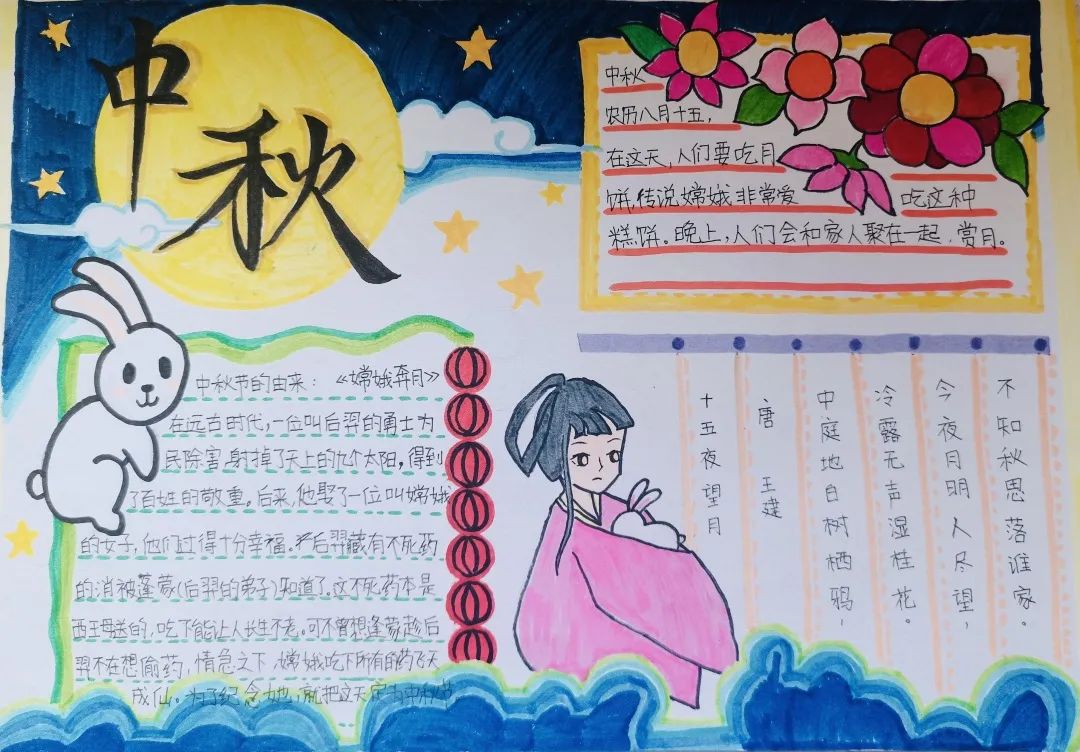 中秋
中秋
农历八月十五，
在这天，人们要吃月
饼，传说嫦娥非常爱 吃这种
糕饼。晚上，人们会和家人聚在一起，赏月。
中秋节的由来：《嫦娥奔月》
在远古时代，一位叫后羿的勇士为
民除害，射掉了天上的九个太阳，得到
了百姓的敬重。后来，他娶了一位叫嫦娥
的女子，他们过得十分幸福。后羿藏有不死药
的消被蓬蒙（后羿的弟子）知道了。这不死药本是
西王母送的，吃下能让人长生不老。可不曾想逢蒙趁后
羿不在想偷药，情急之下，嫦娥吃下所有的药飞天
成仙。为了纪念她，就把这天定为中秋节
十五夜望月
唐 王建
中庭地白树栖鸦，
冷露无声湿桂花。
今夜月明人尽望，
不知秋思落谁家。